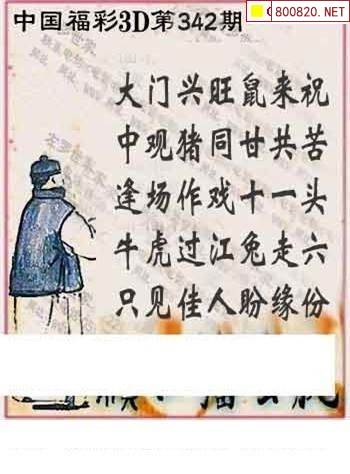 中国福彩3D第342期
800820.NET
大门兴旺鼠来祝
中观猪同甘共苦
逢场作戏十一头
牛虎过江兔走六
只见佳人盼缘份